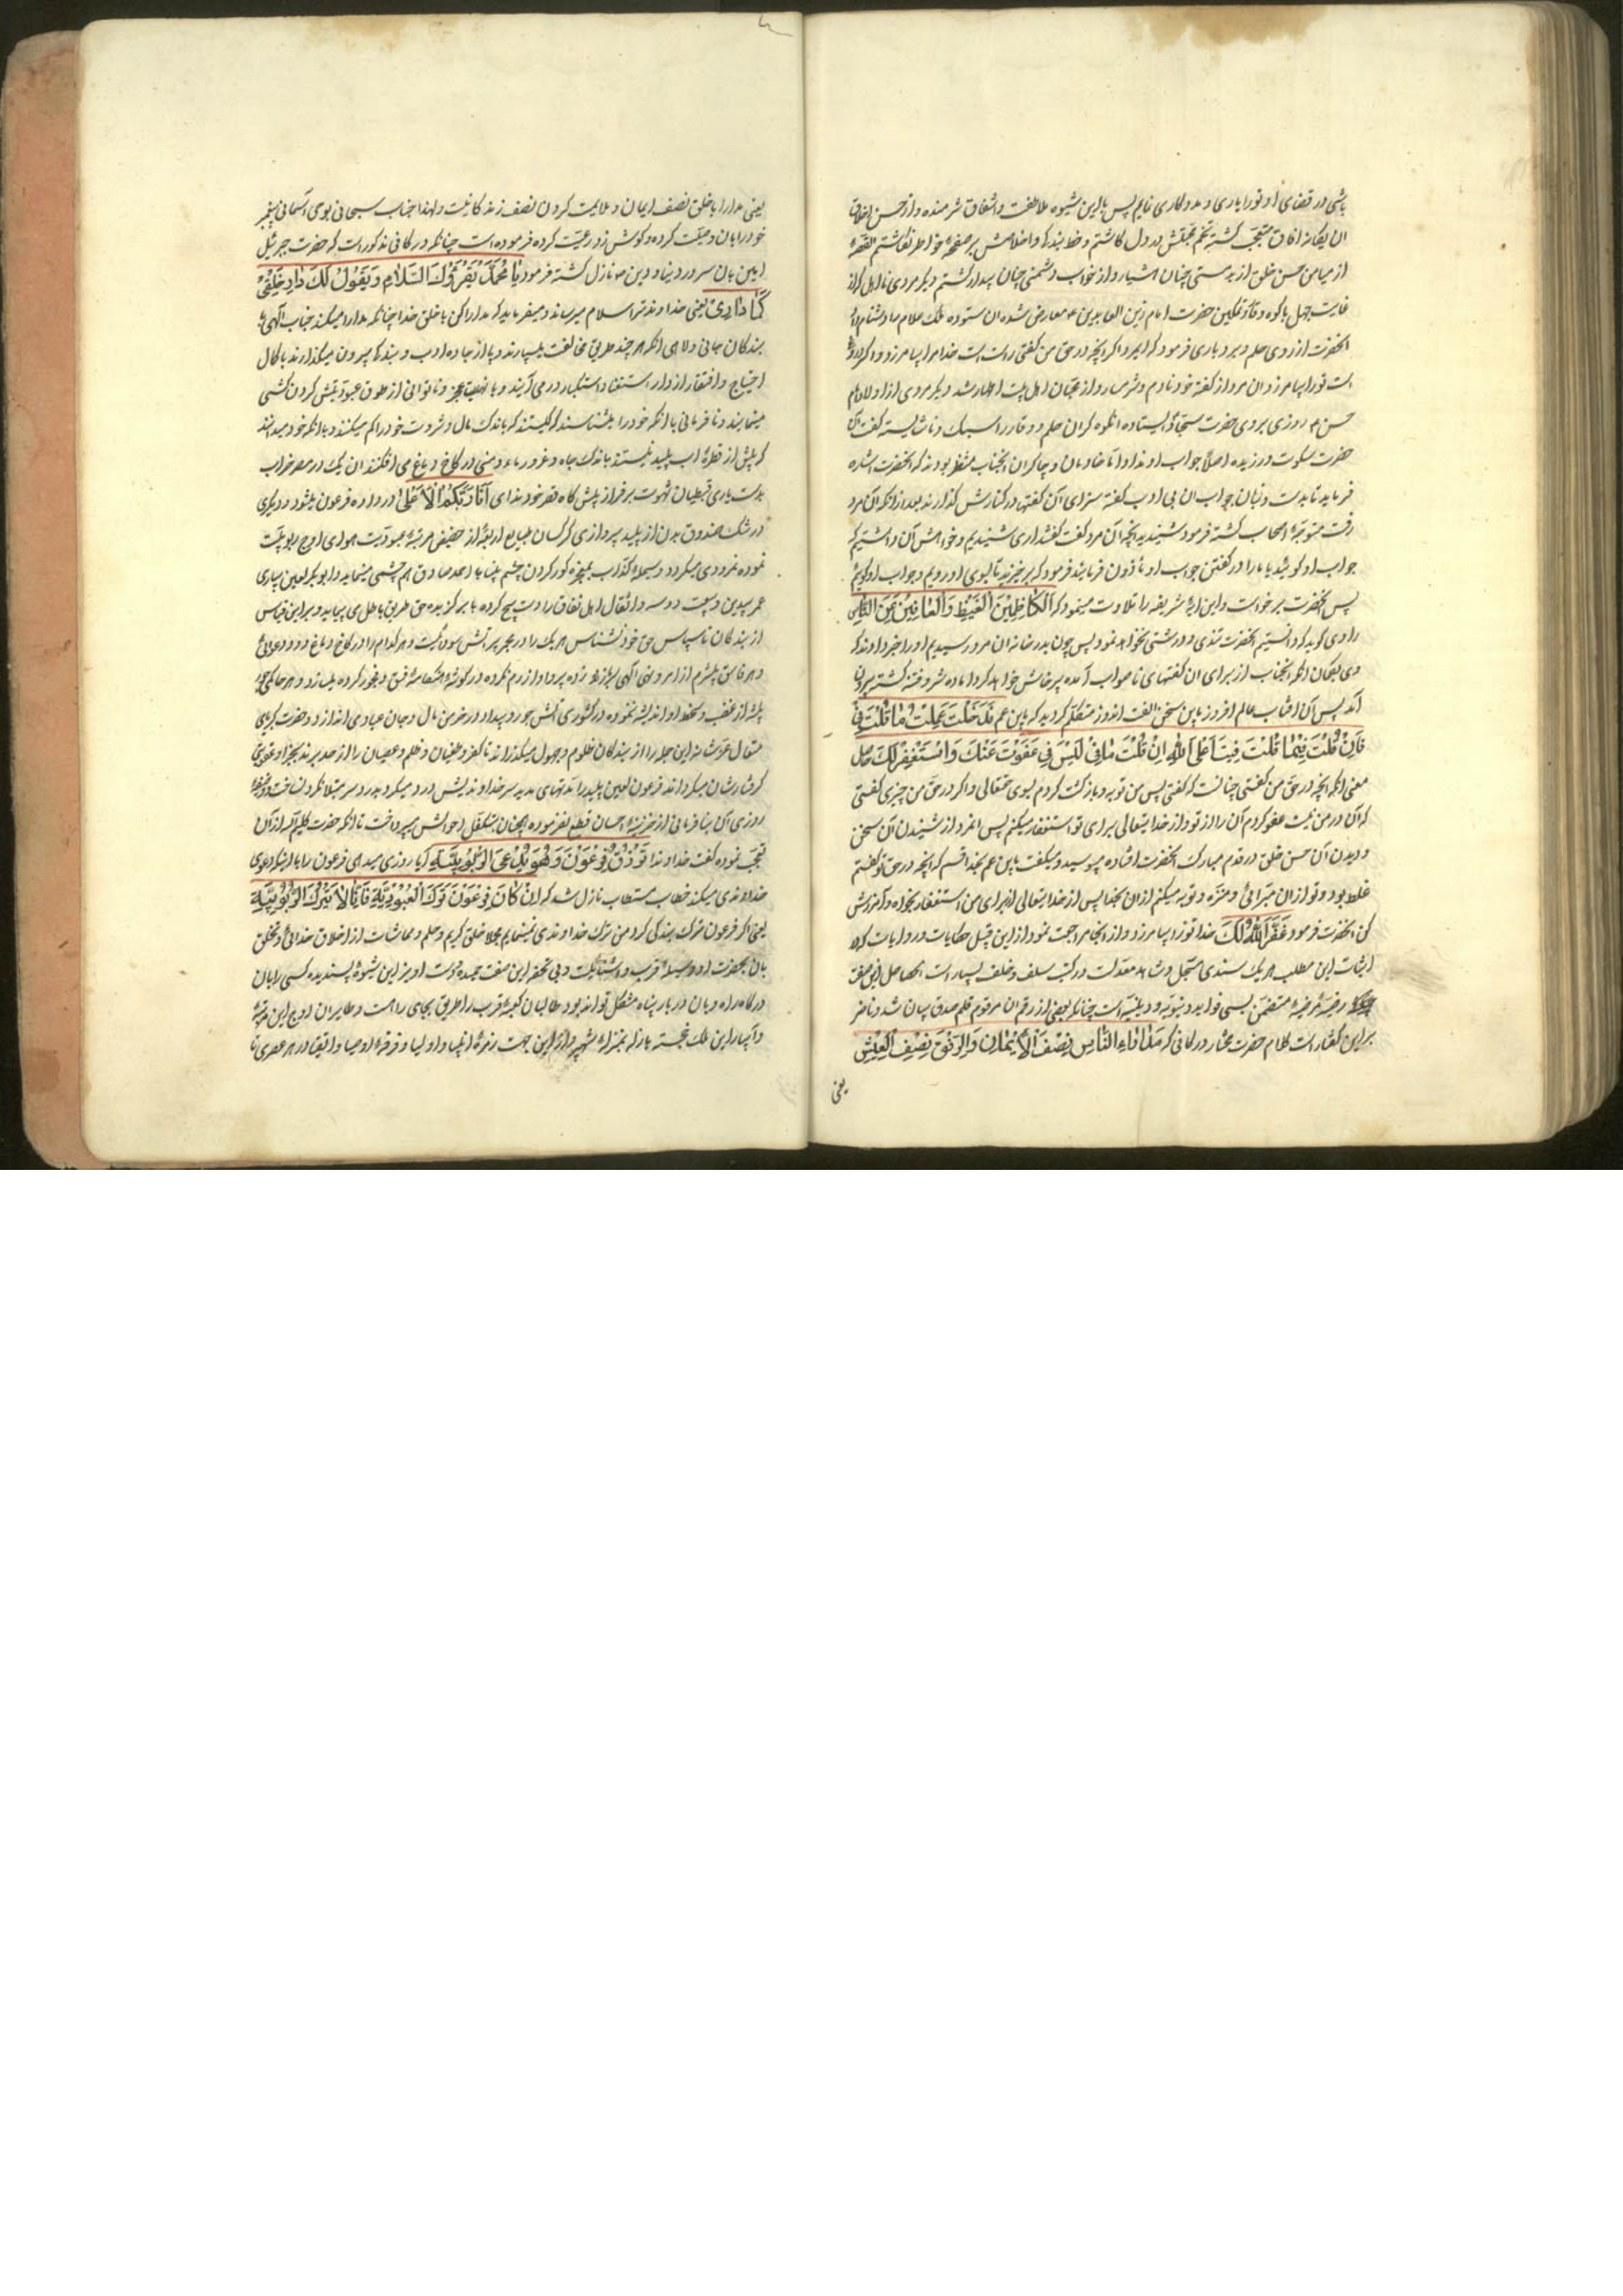 باشی در قضای او تو را یاری و مددکاری نمایم پس باین شیوه ملاطفت و اشفاق شرمنده و از حسن اخلاق
ان یگانه افاق متعجب کشته تخم محبتش در دل کاشتم و خط بندکی و اخلاصش بر صفحهٔ خواطر نکاشتم القصه
از میامن حسن خلق از بدمستی چنان هشیار و از خواب دشمنی چنان بیدار کشتم دیکر مردی نااهل که از
غایت جهل باکوه وقار و تمکین حضرت امام زین العابدین ع معارض شده ان ستوده ملک علام را دشنام داد
انحضرت از روی حلم و بردباری فرمود که ایمرد اکر انچه در حق من کفتی راست است خدا مرا بیامرزد و اکر دروغ
است تو را بیامرزد ان مرد از کفته خود نادم و شرمسار و از محبان اهل بیت اطهار شد دیکر مردی از اولاد امام
حسن ع روزی بروی حضرت سجاد ایستاده انکوه کران حلم و وقار را سبک و ناشایسته کفت آن
حضرت سکوت ورزیده اصلا جواب او نداد اما خادمان و چاکران انجناب منتظر بودند که انحضرت اشاره
فرماید تا بدست و زبان جواب ان بی ادب کفته سزای آن کفتها در کنارش کذارند بعد از انکه آن مرد
رفت متوجه اصحاب کشته فرمود شنیدید انچه آن مرد کفت کفتند اری شنیدیم و خواهش آن داشتیم که
جواب او کوئید یا ما را در کفتن جواب او ماذون فرمایند فرمود که برخیزید تا بسوی او رویم و جواب او کویم
پس انحضرت برخواست و این ایهٔ شریفه را تلاوت مینمود که اَلْکاظِمینَ الْغَیْظَ وَالْعافینَ عَنِ النّاسِ
راوی کوید که دانستیم انحضرت تندی و درشتی نخواهد نمود پس چون بدر خانه ان مرد رسیدیم او را خبر دادند که
وی بکمان انکه انجناب از برای ان کفتهای ناصواب آمده پرخاش خواهد کرد اماده شر و فتنه کشته بیرون
آمد پس آن افتاب عالم افروز باین سخن الفت اندوز متکلم کردید که یابن عم قَدْ خَلَتْ عَجِلْتَ ما قُلْتَ فِیَّ
فَاِنْ قُلْتَ فیما قُلْتَ فینا عَلَی اللّهِ اِنْ قُلْتَ ما فِیَّ لَیْسَ فِی عَفَوْتُ عَنْکَ وَاسْتَغْفِرُ لَکَ حاصل
معنی انکه انچه در حق من کفتی چنانست که کفتی پس من توبه و بازکشت کردم بسوی حقتعالی و اکر در حق من چیزی کفتی
که آن در من نیست عفو کردم آن را از تو و از خدایتعالی برای تو استغفار میکنم پس انمرد از شنیدن آن سخن
و دیدن آن حسن خلق در قدم مبارک انحضرت افتاده میبوسید و میکفت یابن عم بخدا قسم که انچه در حق تو کفتم
غلط بود و تو از ان مبرائی و منزه و توبه میکنم از ان بخدا پس از خدایتعالی از برای من استغفار بخواه و امرزش
کن انحضرت فرمود غَفَرَ اللّهُ لَکَ خدا تو را بیامرزد و از انجا مراجعت نمود از این قبیل حکایات و روایات که در
اثبات این مطلب هر یک سندی مسجل و شاهد معدلست در کتب سلف و خلف بسیار است الحاصل این صفت
رضیه مرضیه متضمن بسی فواید دنیویه و دینیه است چنانکه بعضی از ان مرقوم قلم صدق بیان شد و ناظر
بر این کفتار است کلام حضرت مختار در کافی که مُداراةُ النّاسِ نِصْفُ الْاِیْمانِ وَالرِّفْقُ نِصْفُ الْعَیْشِ
یعنی
یعنی مدارا با خلق نصف ایمان و ملایمت کردن نصف زندکانیست و لهذا جناب سبحانی بوحی آسمانی پیغمبر
خود را بان وصیت کرده و کوش زد رعیت کرده فرموده است چنانکه در کافی مذکور است که حضرت جبرئیل
امین بان سرور دنیا و دین ص نازل کشته فرمود یا مُحَمَّدُ رَبُّکَ یُقْرِئُکَ السَّلامَ وَیَقُولُ لَکَ دارِ خَلْقی
کَما داری یعنی خداوند ترا سلام میرساند و میفرماید که مدارا کن با خلق خدا چنانکه مدارا میکند جناب آلهی با
بندکان جانی و لاهی انکه هر چند طریق مخالفت میسپارند و پا از جاده ادب و بندکی بیرون میکذارند با کمال
احتیاج و افتقار از در استغنا و استکبار در می آیند و با نهایت عجز و ناتوانی از طوق عبودیتش کردن کشی
مینمایند و نافرمانی با انکه خود را میشناسند که کیستند که باندک مال و ثروت خود را کم میکنند و با انکه خود میدانند
که بیش از قطرهٔ اب پلید نیستند باندک جاه و غرور ماء و منی در کاخ دماغ می افکنند ان یک در مصر خراب
بدستیاری قبطیان شهوت بر فراز پیش کاه قصر خود ندای اَنَا رَبُّکُمُ الْاَعْلی در داده فرعون میشود و دیکری
در شک صندوق بدن از پلید پروازی کرکسان طبایع اربعه از حضیض مرتبهٔ عبودیت هوای اوج ربوبیت
نموده نمرودی میکردد و مسیلمهٔ کذاب بمعجزه کور کردن چشم بینا با احمد صادق هم چشمی مینماید و ابوبکر لعین بیاری
عمر بیدین و بیعت دو سه دانقال اهل نفاق را دست پیچ کرده با برکزیده حق طریق باطل می پیماید و بر این قیاس
از بندکان ناسپاس حق خود نشناس هر یک را در مجمر پر آتش سودائیست و هر کدام را در کاخ دماغ دود دعوائی
و هر فاسق بیشرم از امر و نهی آلهی سر باز زده پروا و ازرم نکرده در کوشهٔ انعکاسهٔ فسق و فجور کرده میسازد و هر حاکم جور
پیشه از غضب و سخط او اندیشه ننموده در کشوری آتش جور و بیداد در خرمن مال و جان عبادی اندازد و حضرت کبریای
متعال عز شانه این جمله را از بندکان ظلوم و جهول میکذراند تا کفر و طغیان و ظلم و عصیان را از حد برند بجزا و عقوبت
کرفتارشان میکرداند فرعون لعین پلید را تهای مدید سر خداوندیش درد میکرد بدرد سر مبتلا نکرد و لسافت وظیفهٔ
روزی آن بنافرمانی از خزینهٔ احسان قطع نفرموده همچنان متکفل احوالش میپرداخت تا انکه حضرت کلیم آله از آن
تعجب نموده کفت خداوندا تَرْزُقُ فِرْعَوْنَ وَهُوَ یَدَّعِی الرُّبُوبِیَّةَ آیا روزی میدهی فرعون را با انکه دعوی
خداوندی میکند خطاب مستطاب نازل شد که اِنْ کانَ فِرْعَوْنُ تَرَکَ الْعُبُودِیَّةَ فَاَنَا لا اَتْرُکُ الرُّبُوبِیَّةَ
یعنی اکر فرعون ترک بندکی کرد من ترک خداوندی نمینمایم مجملا خلق کریم و حلم و مماشات از اخلاق خدائی و تخلق
بان بحضرت او وسیلهٔ قرب و آشنائیست و بی تحفه این صفت حمیده و دست اویز این شیوهٔ پسندیده کسی را بان
درکاه راه و بان دربار پناه مشکل تواند بود و طالبان کعبهٔ قرب را طریق بجای راه است و طایران اوج این مرتبه
و آبسار این ملک خجسته باز له بمنزلهٔ شهپر و از این جهت زمرهٔ انبیا و اولیا و فرقهٔ اوصیا و اتقیا در هر عصری تا